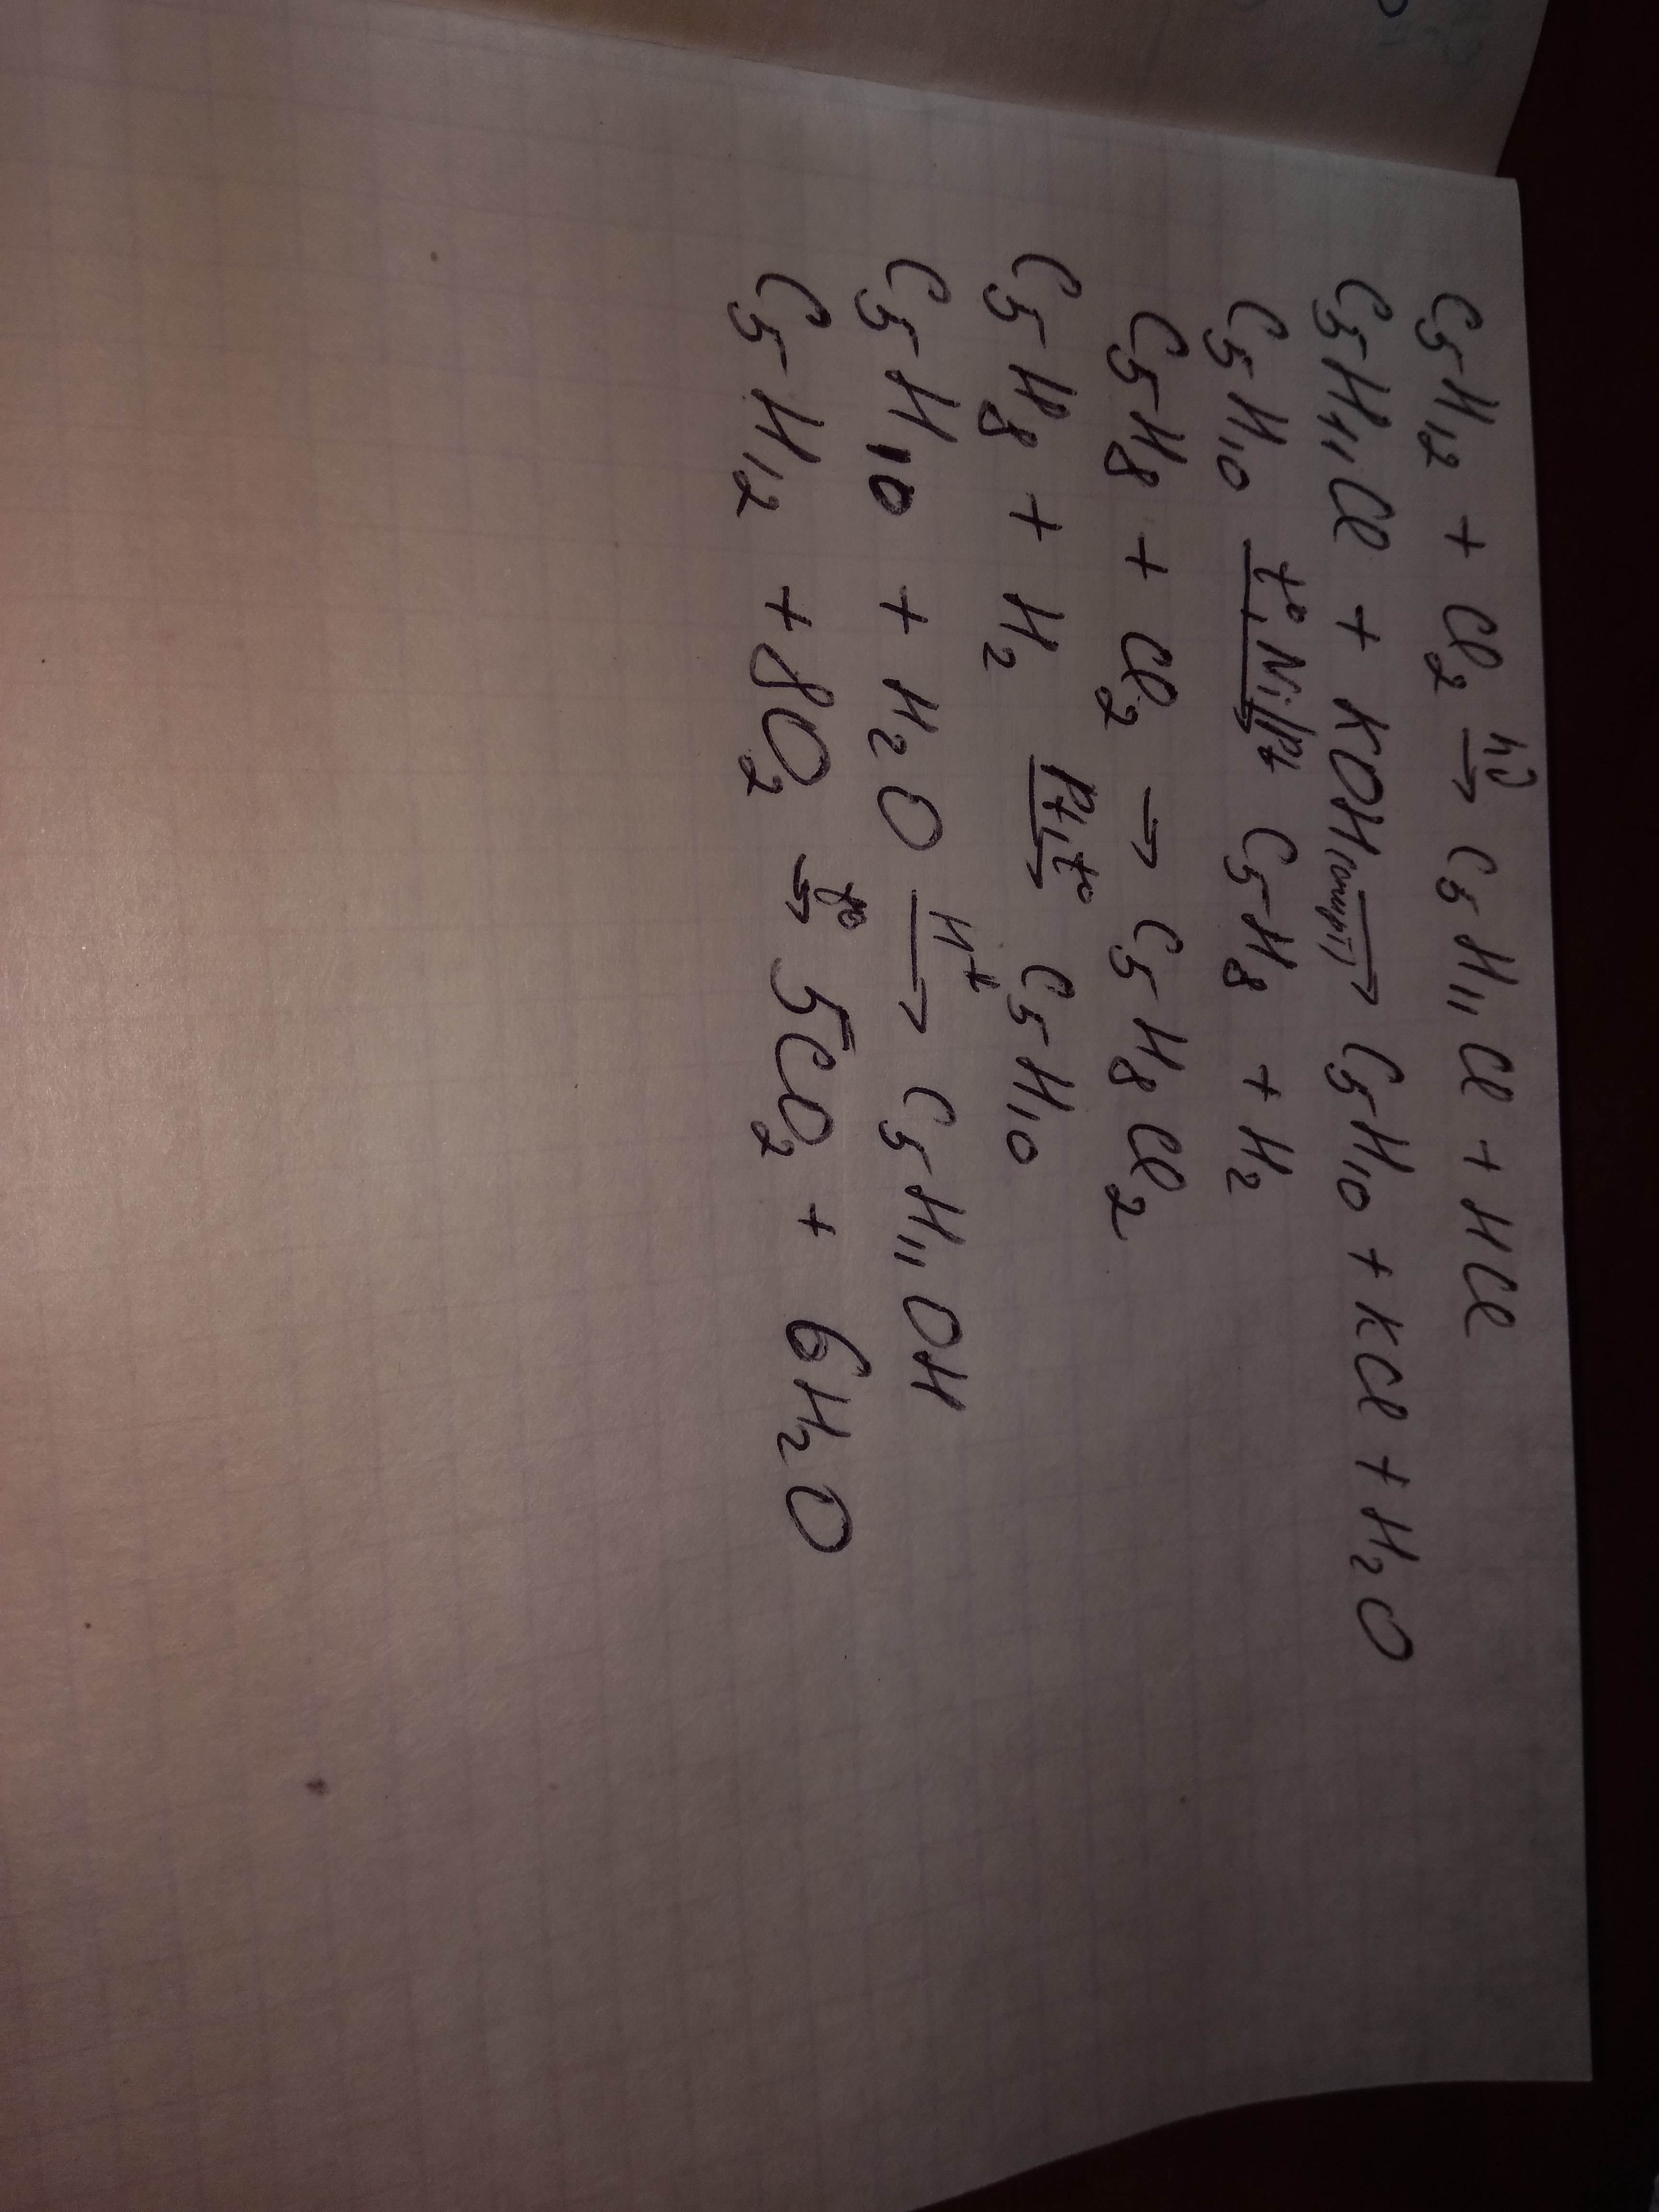 C₅H₁₂ + Cl₂ →^hν C₅H₁₁Cl + HCl
C₅H₁₁Cl + KOH(спирт) → C₅H₁₀ + KCl + H₂O
C₅H₁₀ →^t°, Ni/Pt C₅H₈ + H₂
C₅H₈ + Cl₂ → C₅H₈Cl₂
C₅H₈ + H₂ →^Pt, t° C₅H₁₀
C₅H₁₀ + H₂O →^H⁺ C₅H₁₁OH
C₅H₁₂ + 8O₂ →^t° 5CO₂ + 6H₂O